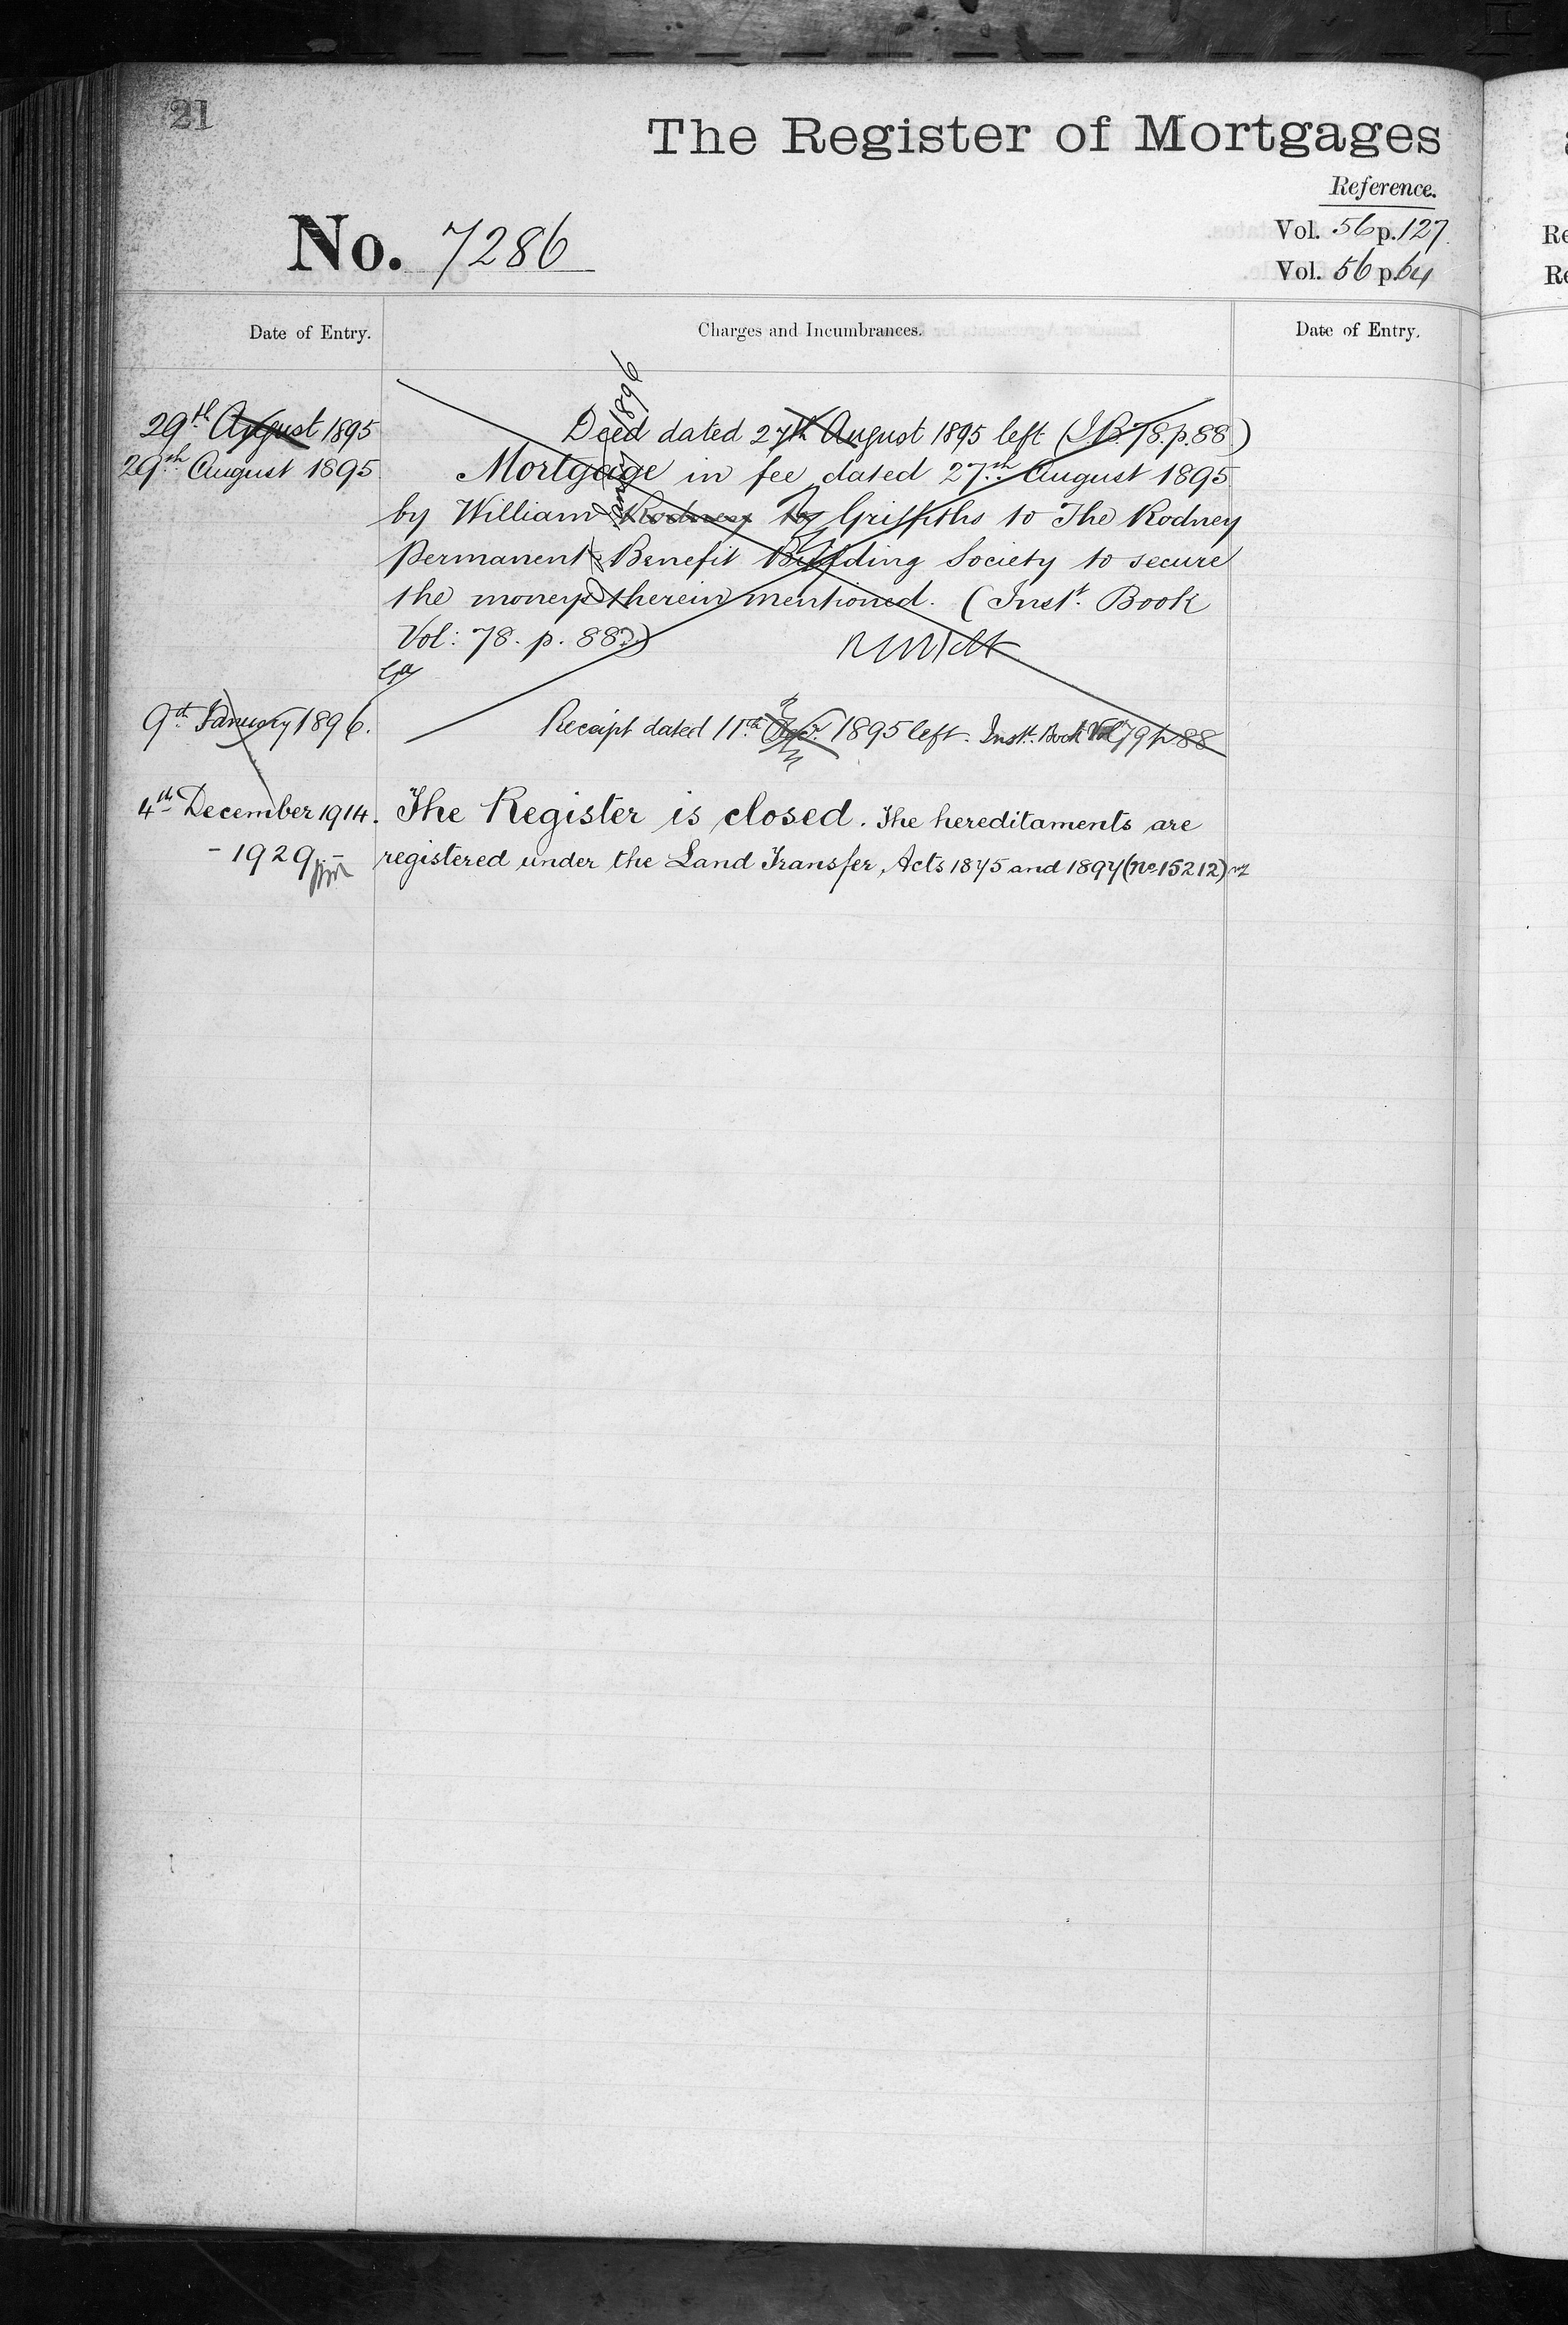 21
The Register of Mortgages
Reference.
No. 7286
Vol. 56 p. 127
Vol. 56 p. 64
Date of Entry.
Charges and Incumbrances.
Date of Entry.
29th August 1895
Deed dated 27th August 1895 left (I.B. 78. p. 88)
29th August 1895
Mortgage in fee dated 27th August 1895
by William Rodney by Griffiths to The Rodney
Permanent Benefit Building Society to secure
the moneys therein mentioned. (Inst. Book
Vol: 78. p. 88)
9th January 1896.
Receipt dated 11th 1895 left. Inst. Book Vol 79 p 88
1896
4th December 1914.
The Register is closed. The hereditaments are
- 1929 -
registered under the Land Transfer, Acts 1875 and 1897 (No 15212)
Re
Re